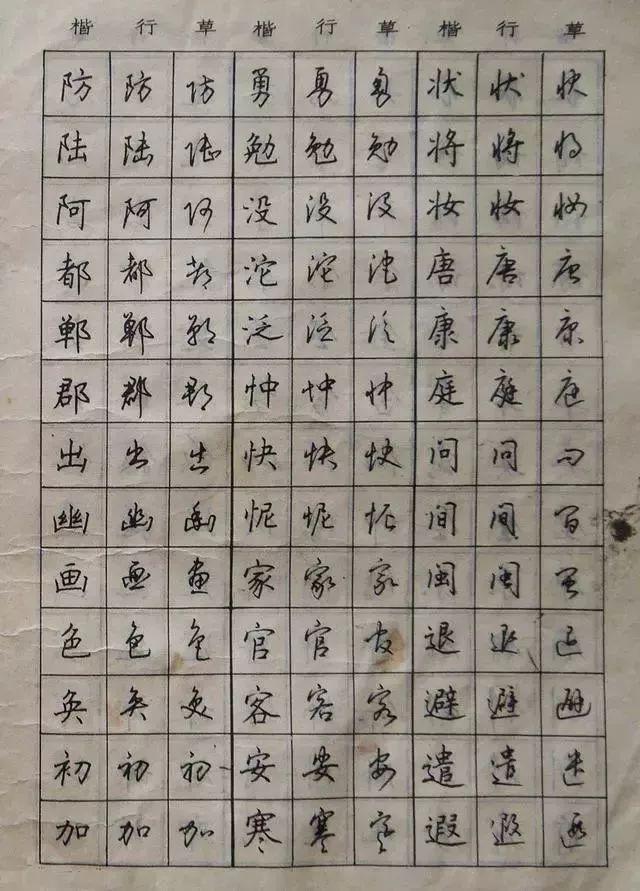 楷 行 草 楷 行 草 楷 行 草
防 防 防 勇 勇 勇 状 状 状
陆 陆 陆 勉 勉 勉 将 将 将
阿 阿 阿 没 没 没 妆 妆 妆
都 都 都 沱 沱 沱 唐 唐 唐
郸 郸 郸 泛 泛 泛 康 康 康
郡 郡 郡 忡 忡 忡 庭 庭 庭
出 出 出 快 快 快 问 问 问
幽 幽 幽 怩 怩 怩 间 间 间
画 画 画 家 家 家 闽 闽 闽
色 色 色 官 官 官 退 退 退
奂 奂 奂 客 客 客 避 避 避
初 初 初 安 安 安 遣 遣 遣
加 加 加 寒 寒 寒 遐 遐 遐